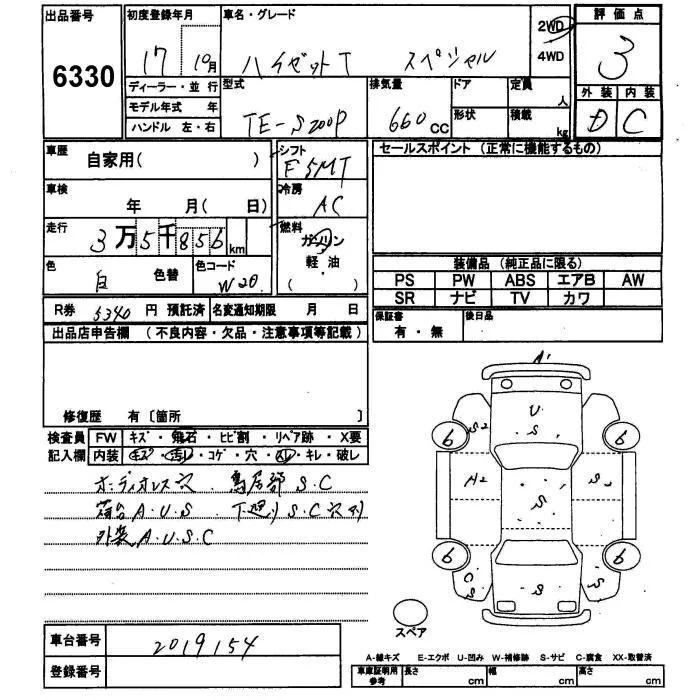 出品番号 6330
初度登録年月 17 10月
車名・グレード ハイゼットT スペシャル
2WD 4WD
評価点 3
外装 D 内装 C
ディーラー・並行
モデル年式 年
ハンドル 左・右
型式 TE-S200P
排気量 660 CC
ドア 形状
定員 人
積載 kg
車歴 自家用( )
シフト F5MT
セールスポイント (正常に機能するもの)
車検 年 月( 日)
冷房 AC
走行 3万5千856km
燃料 ガソリン 軽・油 ( ・ )
色 白 色替
色コード W20
装備品 (純正品に限る)
PS PW ABS エアB AW
SR ナビ TV カワ
R券 5340 円 預託済 名変通知期限 月 日
保証書 有・無
後日品
出品店申告欄 (不良内容・欠品・注意事項等記載)
修復歴 有〔箇所 〕
検査員 FW キズ・飛石・ヒビ割・リペア跡・X要
記入欄 内装 キズ・汚レ・コゲ・穴・スレ・キレ・破レ
ボディオレス穴 鳥居部 S.C
荷台 A.U.S 下廻り S.C穴有
外装 A.U.S.C
A'
U
S
6 S2 6
A2 S S
6 C S S S 6
スペア
車台番号 2019154
登録番号
A-線キズ E-エクボ U-凹み W-補修跡 S-サビ C-腐食 XX-取替済
車庫証明用参考 長さ cm 幅 cm 高さ cm